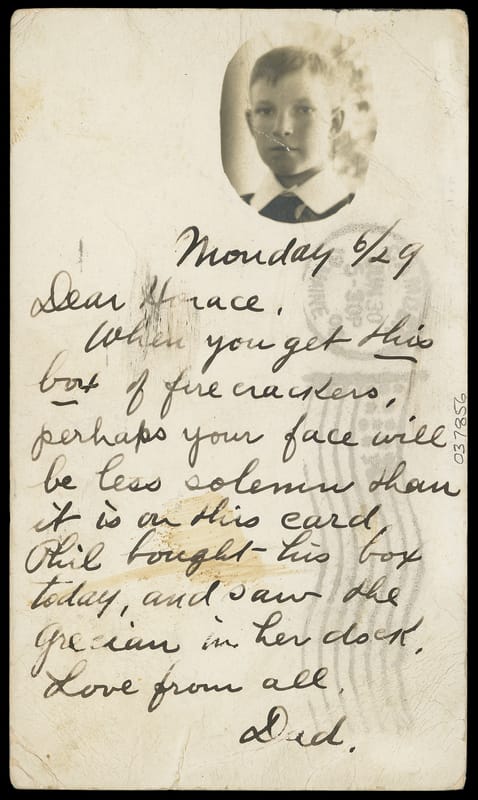 Monday 6/29
Dear Horace,
When you get this
box of firecrackers,
perhaps your face will
be less solemn than
it is on this card.
Phil bought his box
today, and saw the
Grecian in her dock.
Love from all.
Dad.
037856